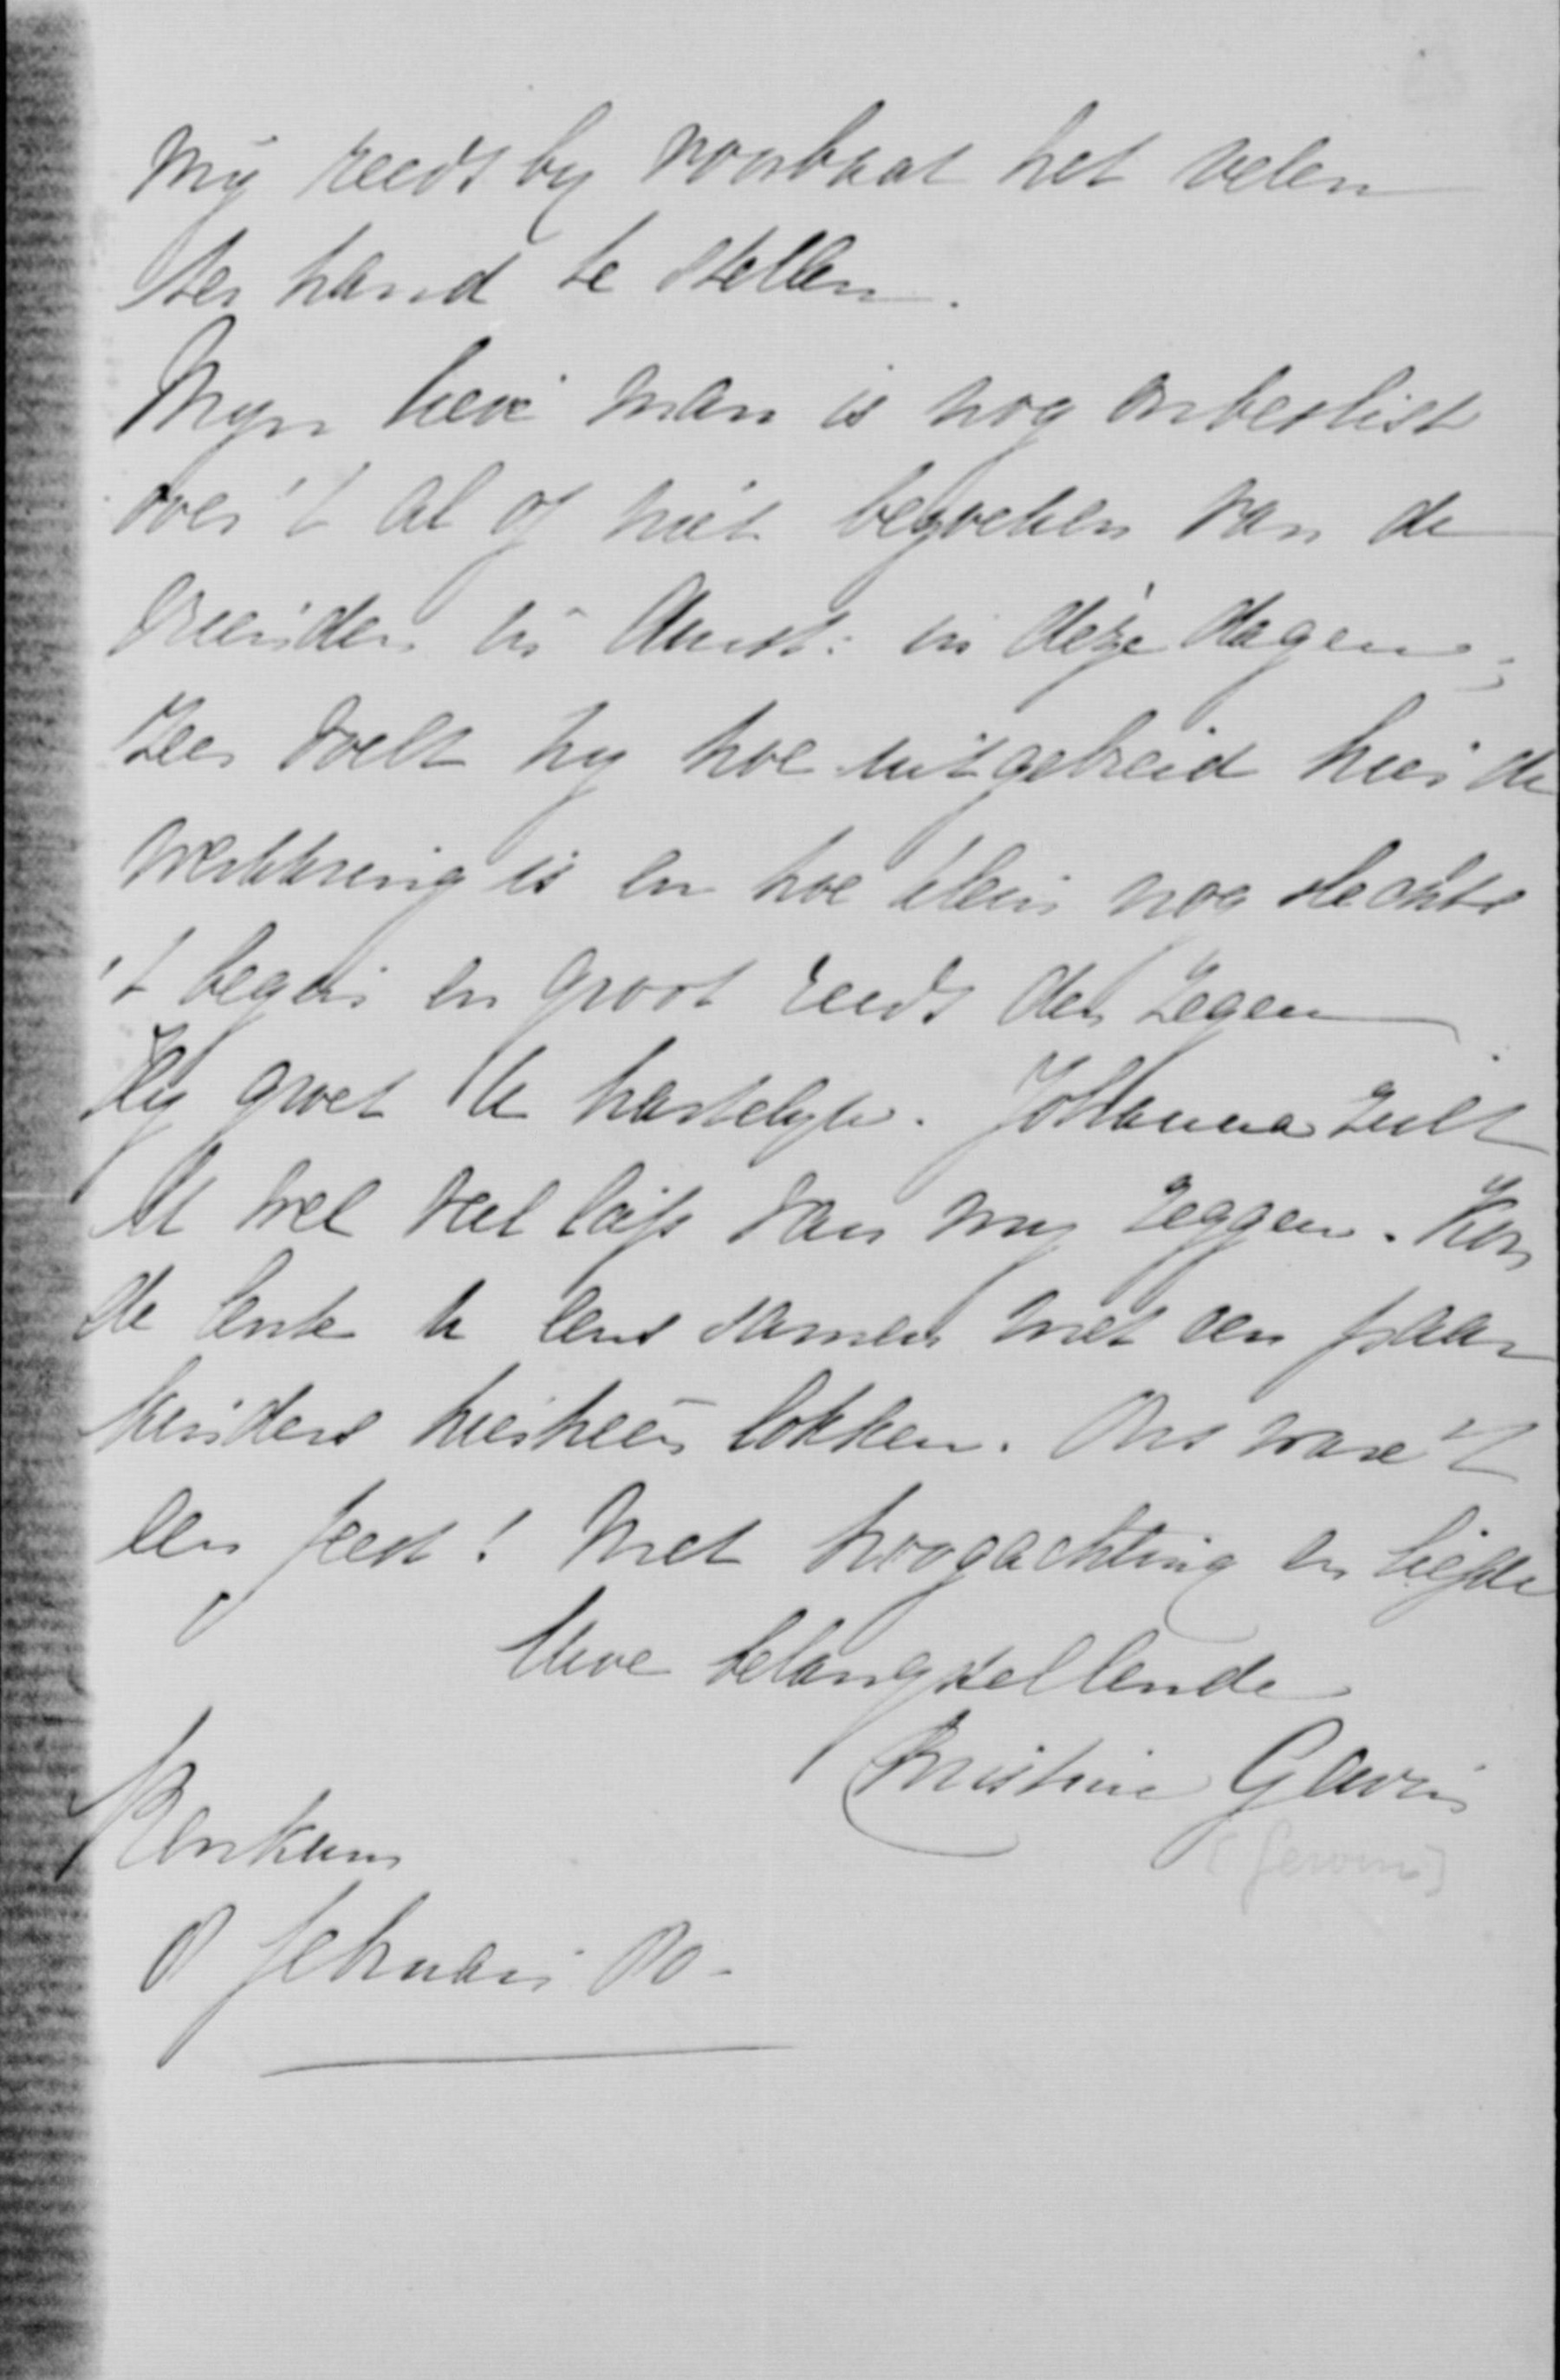 my reeds by voorbaat het velen
ter hand te stellen.
Myn lieve man is nog onbeslist
over 't al of niet bezoeken van de
vrienden in Amst: in deze dagen;
Zeer voelt hy hoe uitgebreid hier de
werkkring is en hoe klein nog slechts
't begin en groot reeds den zegen
Hy groet U hartelyk. Johanna zult
U wel veel liefs van my zeggen. Kon
de lente U eens samen met een paar
kinders hierheen lokken. Ons ware 't
een feest! Met hoogachting en liefde
Uwe belangstellende
Christine
Renkum
8 februari 80-